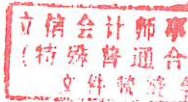 立信会计师事
(特殊普通合
文件